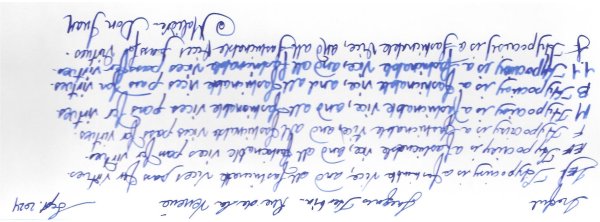 Sept 2024
Hypocrisy is a fashionable vice, and all fashionable vices pass for virtues.
EF Hypocrisy is a fashionable vice, and all fashionable vices pass for virtues.
F Hypocrisy is a fashionable vice, and all fashionable vices pass for virtues.
M Hypocrisy is a fashionable vice and all fashionable vices pass for virtues
B Hypocrisy is a fashionable vice, and all fashionable vices pass for virtues.
Hypocrisy is a fashionable vice, and all fashionable vices pass for virtues.
Hypocrisy is a fashionable vice, and all fashionable vices pass for virtues.
Molière. Don Juan